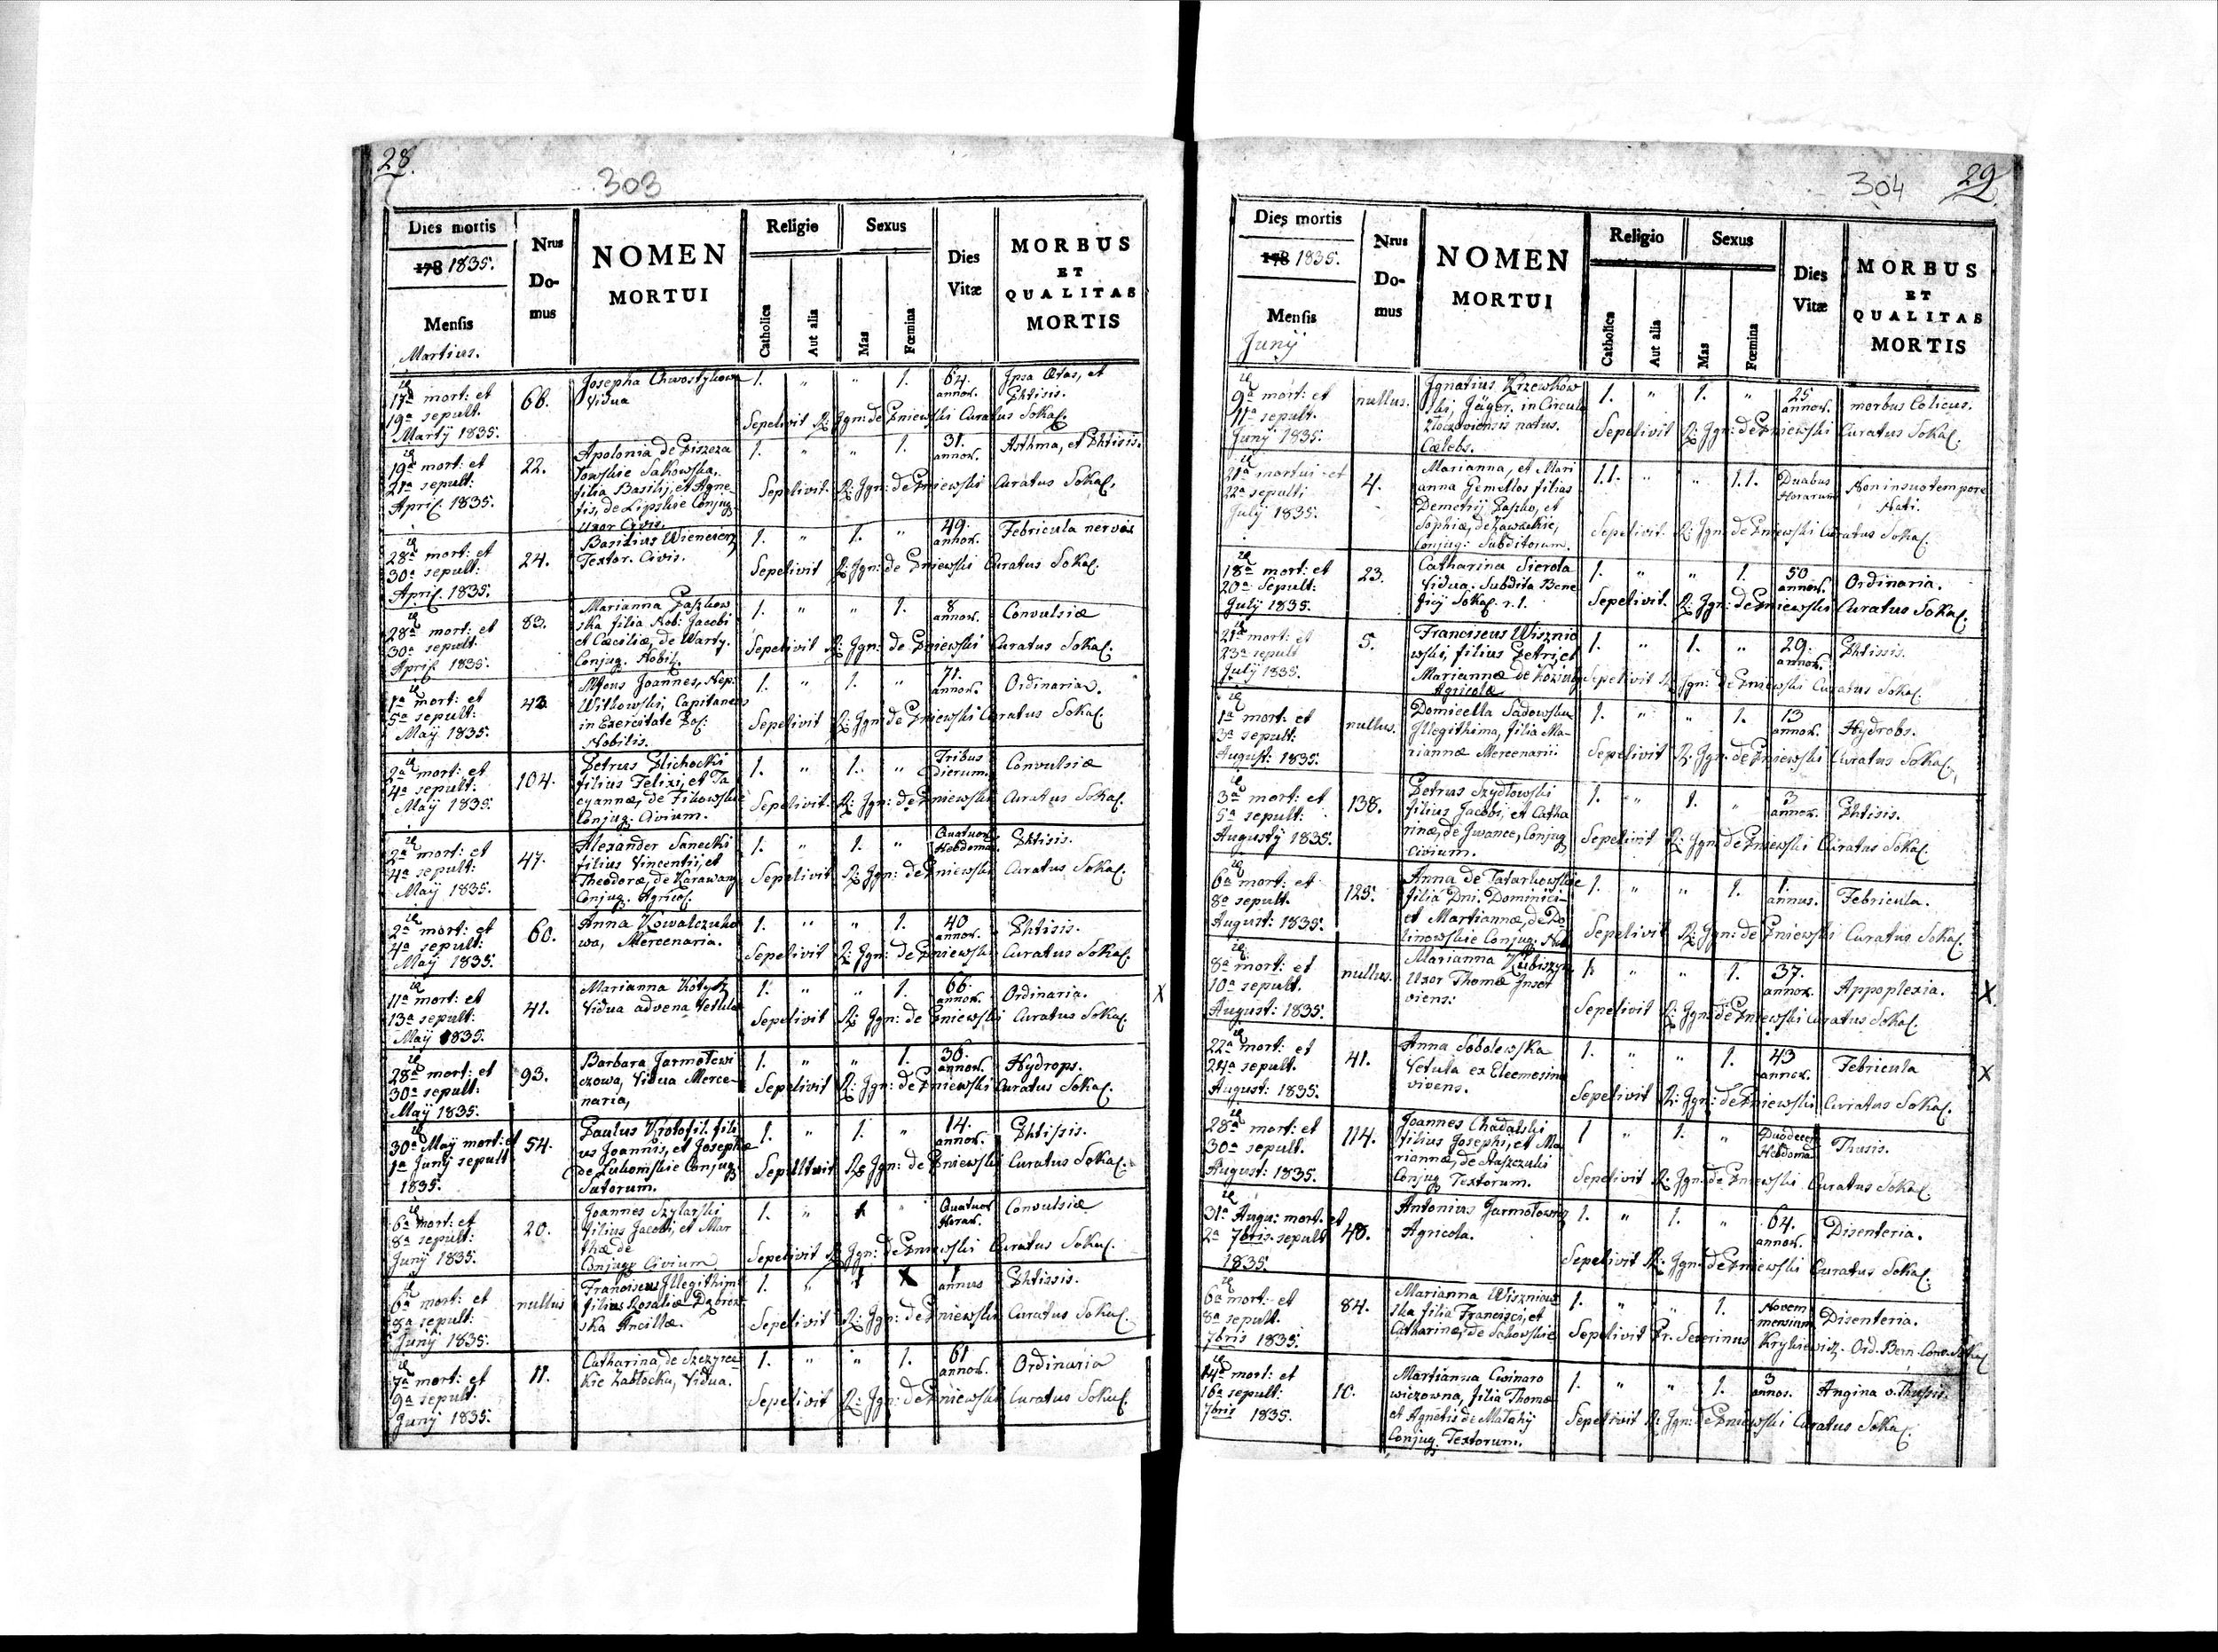 28.
303
Dies mortis
178 1835.
Mensis
Martius.
Nrus Do-mus
NOMEN
MORTUI
Religio
Catholica
Aut alia
Sexus
Mas
Fœmina
Dies Vitæ
MORBUS
ET
QUALITAS
MORTIS
17a mort: et 66. Josepha Chwostykowa 1. " " 1. 64. Ipsa Ætas, et
19a sepult. Vidua annor. Phtisis.
Martÿ 1835. Sepelivit R: Jgn: de Pniewski Curatus Sokal.
19a mort: et 22. Apolonia de Piszcza 1. " " 1. 31. Asthma, et Phtisis.
21a sepult: towskie Sakowska, annor.
April 1835. filia Basilij, et Agne- Sepelivit R: Jgn: de Pniewski Curatus Sokal.
tis, de Lipskie Conjug.
Uxor Civis.
28a mort: et 24. Basilius Wienierz 1. " 1. " 49. Febricula nervos
30a sepult: Textor. Civis. annor.
April. 1835. Sepelivit R: Jgn: de Pniewski Curatus Sokal.
28a mort: et 83. Marianna Paszkow 1. " " 1. 8 Convulsiæ
30a sepult: ska filia Nob: Jacobi annor.
April 1835. et Cæciliæ, de Warty. Sepelivit R: Jgn: de Pniewski Curatus Sokal.
Conjug. Nobil.
1a mort: et 43. Joannes, Nep: 1. " 1. " 71. Ordinaria.
5a sepult: Witkowski, Capitaneus annor.
Maÿ 1835. in Exercitate Pol: Sepelivit R: Jgn: de Pniewski Curatus Sokal.
Nobilis.
2a mort: et 104. Petrus Plichocki 1. " 1. " Tribus Convulsiæ
4a sepult: filius Felixi, et Ta dierum.
Maÿ 1835. cyannæ, de Fikowskie Sepelivit R: Jgn: de Pniewski Curatus Sokal.
Conjug. Civium.
2a mort: et 47. Alexander Sanecki 1. " 1. " Quatuor Phtisis.
4a sepult: filius Vincentii, et Hebdoma.
Maÿ 1835. Theodoræ, de Karawany Sepelivit R: Jgn: de Pniewski Curatus Sokal.
Conjug. Agricol.
2a mort: et 60. Anna Kowalczuko 1. " " 1. 40 Phtisis.
4a sepult: wa, Mercenaria. annor.
Maÿ 1835. Sepelivit R: Jgn: de Pniewski Curatus Sokal.
11a mort: et 41. Marianna Kotych 1. " " 1. 66. Ordinaria. X
13a sepult: Vidua advena Vetula annor.
Maÿ 1835. Sepelivit R: Jgn: de Pniewski Curatus Sokal.
28a mort: et 93. Barbara Jarmołowi 1. " " 1. 36. Hydrops.
30a sepult: czowa, Vidua Merce- annor.
Maÿ 1835. naria, Sepelivit R: Jgn: de Pniewski Curatus Sokal.
30a Maÿ mort: et 54. Paulus Krotofil. fili 1. " 1. " 14. Phtisis.
1a Junÿ sepult us Joannis, et Josephæ annor.
1835. de Lubomskie Conjug Sepelivit R: Jgn: de Pniewski Curatus Sokal.
Sutorum.
6a mort: et 20. Joannes Szylarski 1. " 1 " Quatuor Convulsiæ
8a sepult: filius Jacobi, et Mar Horar.
Junÿ 1835. thæ de Sepelivit R: Jgn: de Pniewski Curatus Sokal.
Conjug. Civium
6a mort: et nullus Franciscus Illegithim 1. " 1 X 1 Phtissis.
8a sepult: filius Rosaliæ Dąbrow annus
Junÿ 1835. ska Ancillæ. Sepelivit R: Jgn: de Pniewski Curatus Sokal.
7a mort: et 11. Catharina, de Szczyrec- 1. " " 1. 61 Ordinaria
9a sepult. kie Zabłocka, Vidua. annor.
Junÿ 1835. Sepelivit R: Jgn: de Pniewski Curatus Sokal.
304
29.
Dies mortis
178 1835.
Mensis
Junÿ
Nrus Do-mus
NOMEN
MORTUI
Religio
Catholica
Aut alia
Sexus
Mas
Fœmina
Dies Vitæ
MORBUS
ET
QUALITAS
MORTIS
9a mort: et nullus. Jgnatius Krzewkow 1. " 1. " 25 morbus Colicus.
11a sepult. ski, Jäger. in Circulo annor.
Junÿ 1835. Złoczoviensis natus. Sepelivit R: Jgn: de Pniewski Curatus Sokal.
Cælebs.
21a mortui et 4. Marianna, et Mari 1.1. " " 1.1. Duabus Non in suo tempore
22a sepulti anna Gemellos filias Horarum Nati.
Julÿ 1835. Demetrij Paszko, et Sepelivit R: Jgn: de Pniewski Curatus Sokal.
Sophiæ, de Zawackie,
Conjug: Subditorum.
18a mort: et 23. Catharina Sierota 1. " " 1. 50 Ordinaria.
20a Sepult: Vidua. Subdita Bene annor.
Julÿ 1835. ficij Sokal. r.l. Sepelivit R: Jgn: de Pniewski Curatus Sokal.
21a mort: et 5. Franciscus Wisznio 1. " 1. " 29. Phtissis.
23a sepult wski, filius Petri, et annor.
Julÿ 1835. Mariannæ de Kozing Sepelivit R: Jgn: de Pniewski Curatus Sokal.
Agricolæ
1a mort: et nullus. Domicella Sadowska 1. " " 1. 13 Hydrobs.
3a sepult: Illegithima, filia Ma- annor.
August: 1835. riannæ Mercenarii. Sepelivit R: Jgn: de Pniewski Curatus Sokal.
3a mort: et 138. Petrus Szydłowski 1. " 1. " 3 Phtisis.
5a sepult: filius Jacobi, et Catha annor.
Augustÿ 1835. rinæ, de Jwance, Conjug Sepelivit R: Jgn: de Pniewski Curatus Sokal.
Civium.
6a mort: et 123. Anna de Tatarkowskie 1. " " 1. 1. Febricula.
8a sepult. filia Dni. Dominici annus.
August: 1835. et Martiannæ, de Do Sepelivit R: Jgn: de Pniewski Curatus Sokal.
linowskie Conjug: Nob
8a mort: et nullus. Marianna Kubiszyn 1. " " 1. 37. Appoplexia. X
10a sepult. Uxor Thomæ Inser annor.
August: 1835. viens: Sepelivit R: Jgn: de Pniewski Curatus Sokal.
22a mort: et 41. Anna Sobolewska 1. " " 1. 43 Febricula X
24a sepult. Vetula ex Eleemosina annor.
August: 1835. vivens. Sepelivit R: Jgn: de Pniewski Curatus Sokal.
28a mort: et 114. Joannes Chadalski 1 " 1. " Duodecem Thusis.
30a sepult. filius Josephi, et Ma Hebdoma
August: 1835. riannæ, de Staszczuki Sepelivit R: Jgn: de Pniewski Curatus Sokal.
Conjug Textorum.
31a Augu: mort. et 40. Antonius Jarmołowicz 1. " 1. " 64. Disenteria.
2a 7bris. sepult Agricola. annor.
1835. Sepelivit R: Jgn: de Pniewski Curatus Sokal.
6a mort: et 84. Marianna Wiszniow 1. " " 1. Novem Disenteria.
8a sepult. ska filia Francisci, et mensium
7bris 1835. Catharinæ, de Sakowskie Sepelivit Pr. Severinus Krykiewicz. Ord. Bern. Conv. Sokal
14a mort: et 10. Martianna Cwinaro 1. " " 1. 3 Angina v. Thussis.
16a sepult: wiczowna, filia Thomæ annor.
7bris 1835. et Agnetis de Małahij Sepelivit R: Jgn: de Pniewski Curatus Sokal.
Conjug. Textorum.